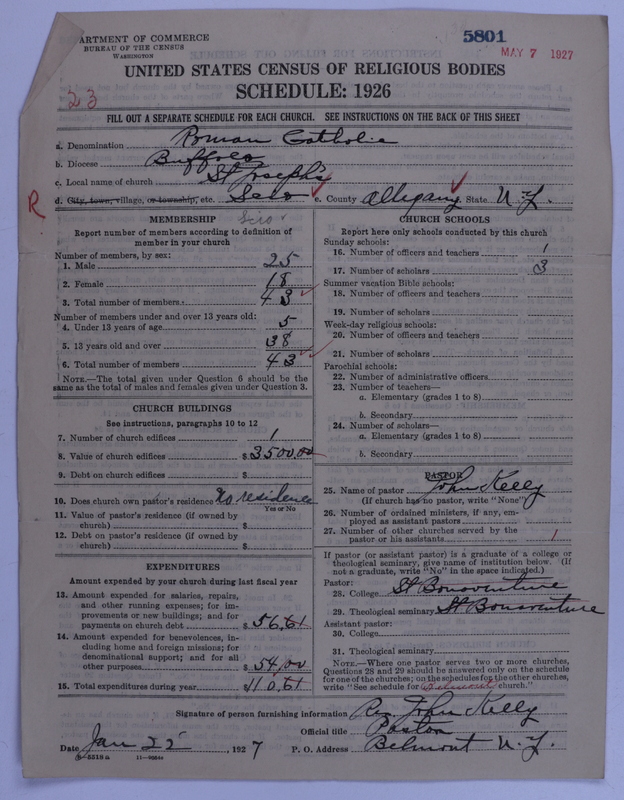 ARTMENT OF COMMERCE
BUREAU OF THE CENSUS
WASHINGTON
5801
MAY 7 1927
UNITED STATES CENSUS OF RELIGIOUS BODIES
SCHEDULE: 1926
23
FILL OUT A SEPARATE SCHEDULE FOR EACH CHURCH. SEE INSTRUCTIONS ON THE BACK OF THIS SHEET
a. Denomination Roman Catholic
b. Diocese Buffalo
c. Local name of church St Joseph's
d. City, town, village, or township, etc. Scio e. County Allegany State N-Y.
R
MEMBERSHIP Scio
Report number of members according to definition of
member in your church
Number of members, by sex:
1. Male 25
2. Female 18
3. Total number of members 43
Number of members under and over 13 years old:
4. Under 13 years of age 5
5. 13 years old and over 38
6. Total number of members 43
NOTE.—The total given under Question 6 should be the
same as the total of males and females given under Question 3.
CHURCH BUILDINGS
See instructions, paragraphs 10 to 12
7. Number of church edifices 1
8. Value of church edifices $3500.00
9. Debt on church edifices $
10. Does church own pastor's residence No residence
Yes or No
11. Value of pastor's residence (if owned by
church) $
12. Debt on pastor's residence (if owned by
church) $
EXPENDITURES
Amount expended by your church during last fiscal year
13. Amount expended for salaries, repairs,
and other running expenses; for im-
provements or new buildings; and for
payments on church debt $56.61
14. Amount expended for benevolences, in-
cluding home and foreign missions; for
denominational support; and for all
other purposes $54.00
15. Total expenditures during year $110.61
CHURCH SCHOOLS
Report here only schools conducted by this church
Sunday schools:
16. Number of officers and teachers 1
17. Number of scholars 3
Summer vacation Bible schools:
18. Number of officers and teachers
19. Number of scholars
Week-day religious schools:
20. Number of officers and teachers
21. Number of scholars
Parochial schools:
22. Number of administrative officers
23. Number of teachers—
a. Elementary (grades 1 to 8)
b. Secondary
24. Number of scholars—
a. Elementary (grades 1 to 8)
b. Secondary
PASTOR
25. Name of pastor John Kelly
(If church has no pastor, write "None")
26. Number of ordained ministers, if any, em-
ployed as assistant pastors
27. Number of other churches served by the
pastor or his assistants 1
If pastor (or assistant pastor) is a graduate of a college or
theological seminary, give name of institution below. (If
not a graduate, write "No" in the space indicated.)
Pastor:
28. College St Bonaventure
29. Theological seminary St Bonaventure
Assistant pastor:
30. College
31. Theological seminary
NOTE.—Where one pastor serves two or more churches,
Questions 28 and 29 should be answered only on the schedule
for one of the churches; on the schedules for the other churches,
write "See schedule for Belmont church."
Signature of person furnishing information Rev John Kelly
Official title Pastor
Date Jan 22, 1927 P. O. Address Belmont N-Y.
8—5518a 11—9034a